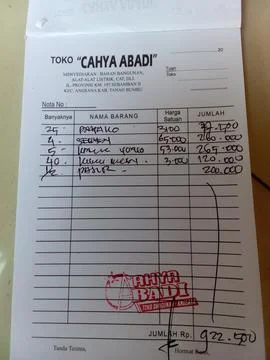 20
TOKO "CAHYA ABADI"
Tuan
Toko
MENYEDIAKAN : BAHAN BANGUNAN,
ALAT-ALAT LISTRIK, CAT, DLL
JL. PROVINSI KM. 197 SEBAMBAN II
KEC. ANGSANA KAB. TANAH BUMBU
Nota No :
Banyaknya NAMA BARANG Harga Satuan JUMLAH
25 .500
4. 65.000 260.000
5 53.000 265.000
40. 3.000 120.000
1/2 PASIR 200.000
CAHYA
ABADI
JUMLAH Rp. 922.500
Tanda Terima, Hormat Kami,